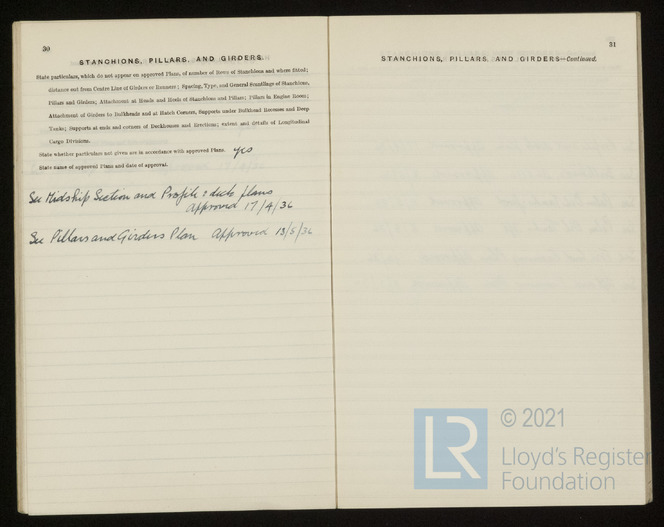 30
STANCHIONS, PILLARS, AND GIRDERS.
State particulars, which do not appear on approved Plans, of number of Rows of Stanchions and where fitted;
distance out from Centre Line of Girders or Runners; Spacing, Type, and General Scantlings of Stanchions,
Pillars and Girders; Attachment at Heads and Heels of Stanchions and Pillars; Pillars in Engine Room;
Attachment of Girders to Bulkheads and at Hatch Corners, Supports under Bulkhead Recesses and Deep
Tanks; Supports at ends and corners of Deckhouses and Erections; extent and details of Longitudinal
Cargo Divisions.
State whether particulars not given are in accordance with approved Plans. yes
State name of approved Plans and date of approval.
See Midship Section and Profile & deck plans
approved 17/4/36
See Pillars and Girders Plan Approved 13/5/36
31
STANCHIONS, PILLARS, AND GIRDERS—Continued.
LR
© 2021
Lloyd's Register
Foundation